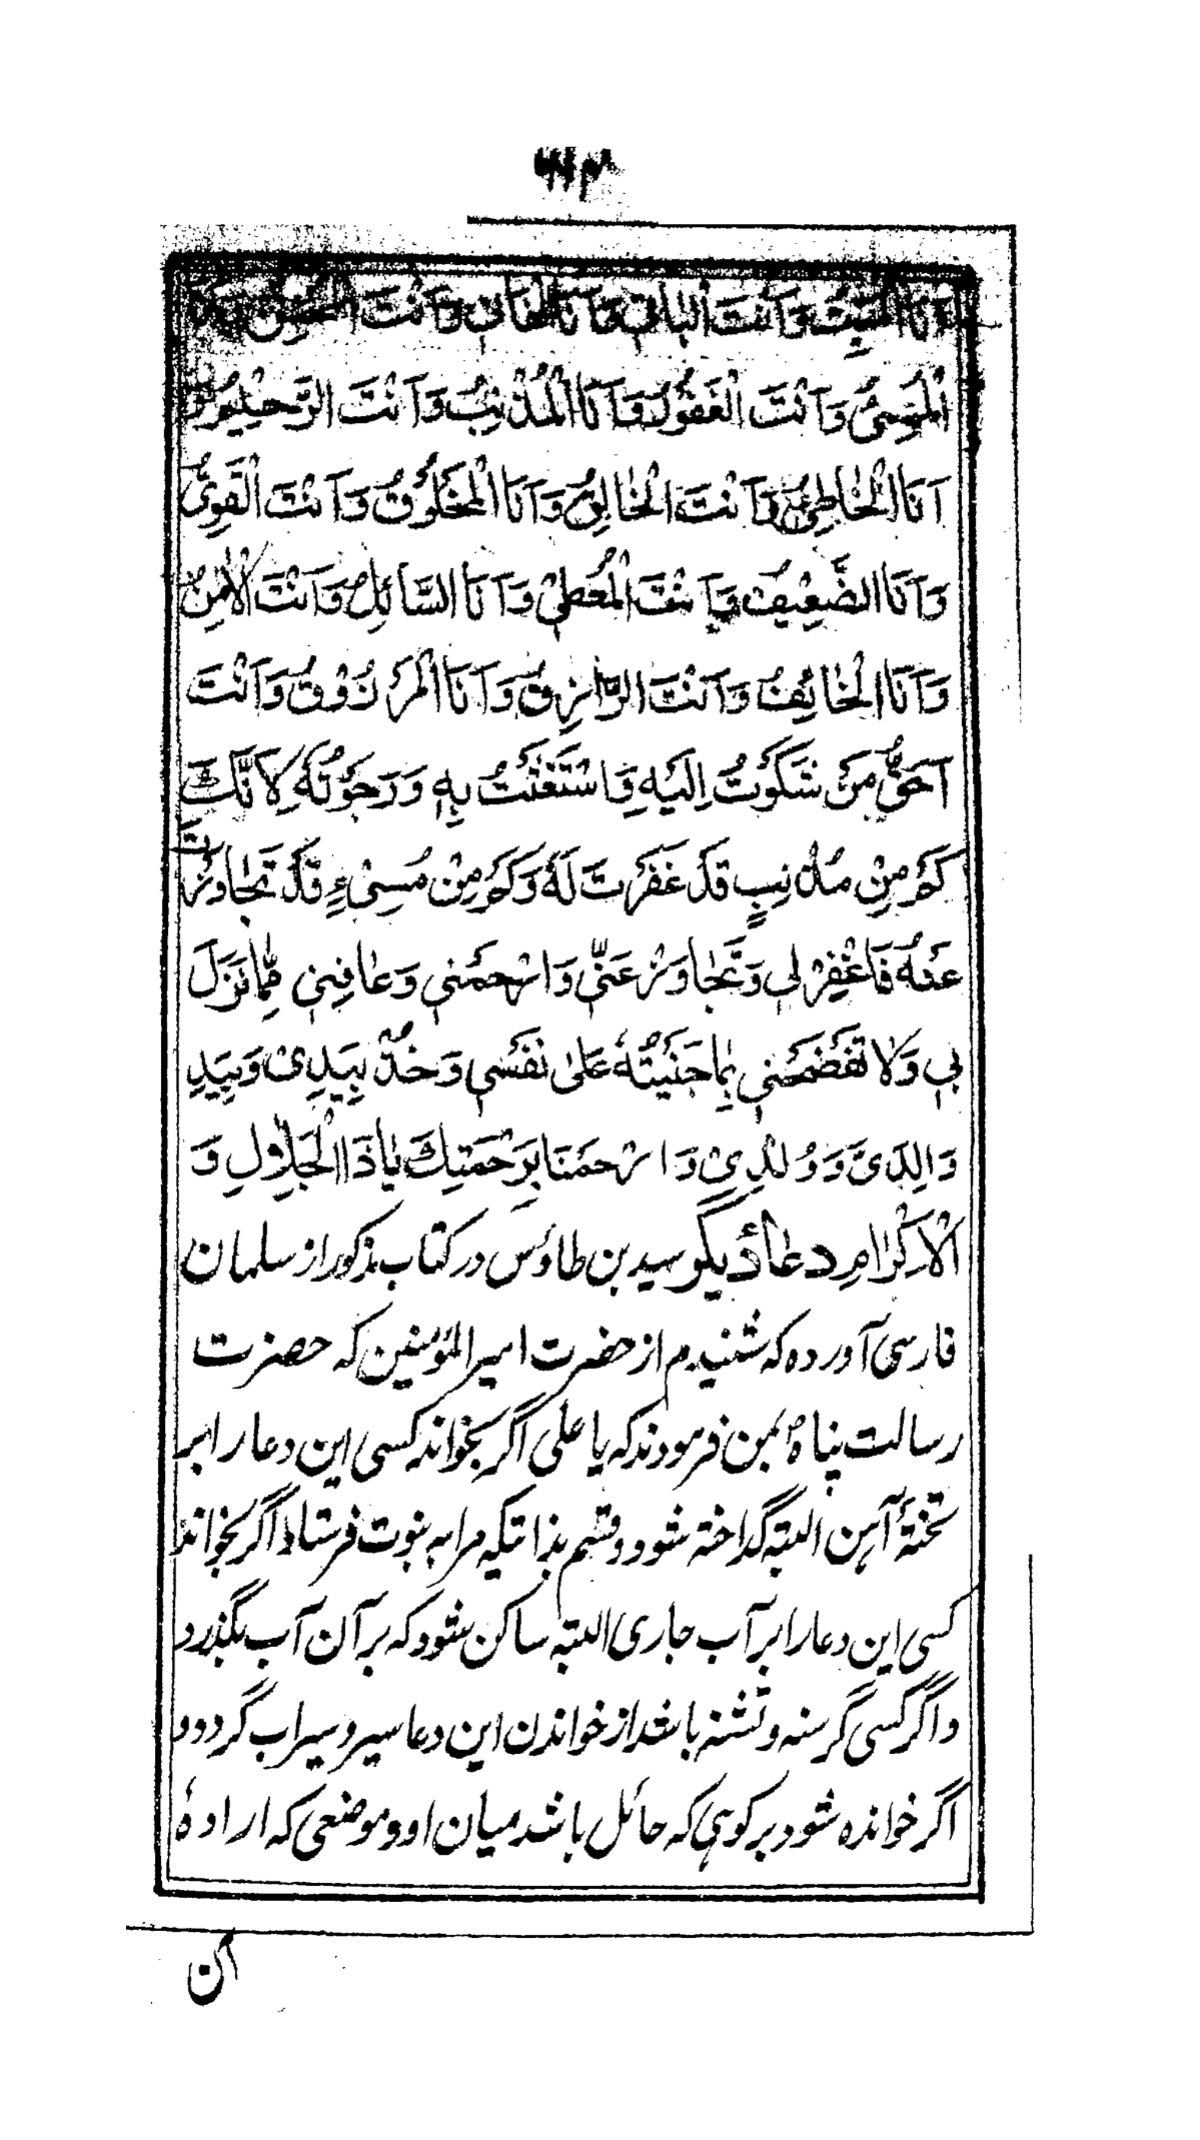 اَنَا الْمَيِّتُ وَاَنْتَ الْبَاقِي وَاَنَا الْفَانِي وَاَنْتَ الْمُحْسِنُ وَاَنَا
الْمُسِيْءُ وَاَنْتَ الْغَفُوْرُ وَاَنَا الْمُذْنِبُ وَاَنْتَ الرَّحِيْمُ وَ
اَنَا الْخَاطِيْءُ وَاَنْتَ الْخَالِقُ وَاَنَا الْمَخْلُوْقُ وَاَنْتَ الْقَوِيُّ
وَاَنَا الضَّعِيْفُ وَاَنْتَ الْمُعْطِيْ وَاَنَا السَّائِلُ وَاَنْتَ الْاَمِنُ
وَاَنَا الْخَائِفُ وَاَنْتَ الرَّازِقُ وَاَنَا الْمَرْزُوْقُ وَاَنْتَ
اَحَقُّ مَنْ شَكَوْتُ اِلَيْهِ وَاسْتَغَثْتُ بِهٖ وَرَجَوْتُهُ لِاَنَّكَ
كَمْ مِنْ مُذْنِبٍ قَدْ غَفَرْتَ لَهُ وَكَمْ مِنْ مُسِيْءٍ قَدْ تَجَاوَزْتَ
عَنْهُ فَاغْفِرْ لِي وَتَجَاوَزْ عَنِّي وَارْحَمْنِي وَعَافِنِي مِمَّا نَزَلَ
بِي وَلَا تَفْضَحْنِي بِمَا جَنَيْتُهُ عَلٰى نَفْسِي وَخُذْ بِيَدِيْ وَبِيَدِ
وَالِدَيَّ وَوُلْدِيْ وَارْحَمْنَا بِرَحْمَتِكَ يَا ذَا الْجَلَالِ وَ
الْاِكْرَامِ دعاء ديگر سيد بن طاؤس در كتاب مذكور از سلمان
فارسى آورده كه شنيدم از حضرت امير المؤمنين كه حضرت
رسالت پناه بمن فرمودند كه يا على اگر بخواند كسى اين دعا را بر
تختهٔ آهن البته گداخته شود و قسم بذاتيكه مرا به نبوت فرستاد اگر بخواند
كسى اين دعا را بر آب جارى البته ساكن شود كه بر آن آب بگذرد
و اگر كسى گرسنه و تشنه باشد از خواندن اين دعا سير و سيراب گردد و
اگر خوانده شود بر كوهى كه حائل باشد ميان او و موضعى كه ارادهٔ
آن